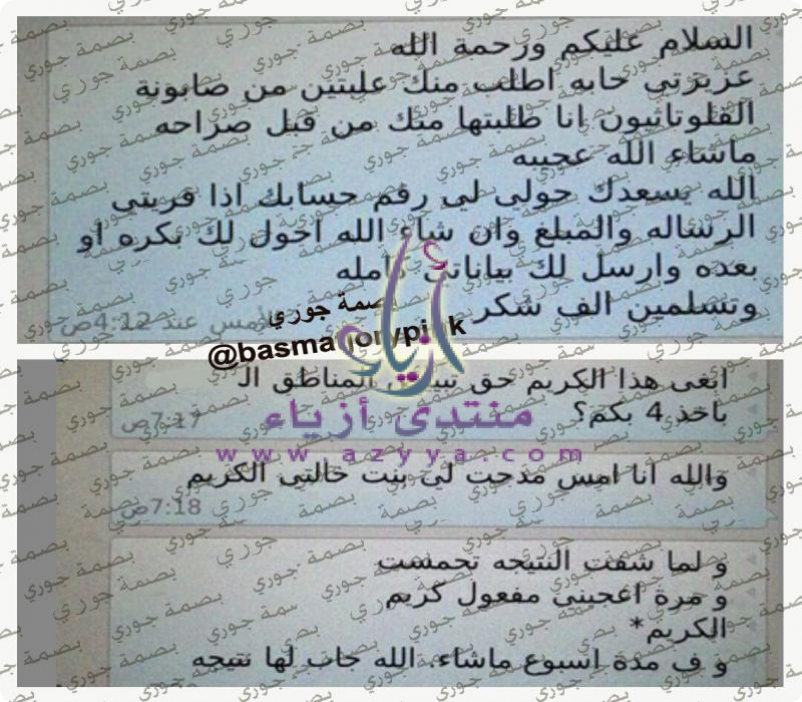 السلام عليكم ورحمة الله
عزيزتي حابه اطلب منك علبتين من صابونة
القلوتاثيون انا طلبتها منك من قبل صراحه
ماشاء الله عجيبه
الله يسعدك حولى لى رقم حسابك اذا قريتي
الرساله والمبلغ وان شاء الله احول لك بكره او
بعده وارسل لك بياناتي كامله
وتسلمين الف شكر
أمس عند 4:12ص
بصمة جوري
@basmahjorypink
أزياء
منتدى أزياء
www.azyya.com
ابغى هذا الكريم حق المناطق الـ
باخذ 4 بكم؟
7:17ص
والله انا امس مدحت لي بنت خالتى الكريم
7:18ص
و لما شفت النتيجه تحمست
و مرة اعجبني مفعول كريم
الكريم*
و ف مدة اسبوع ماشاء الله جاب لها نتيجه